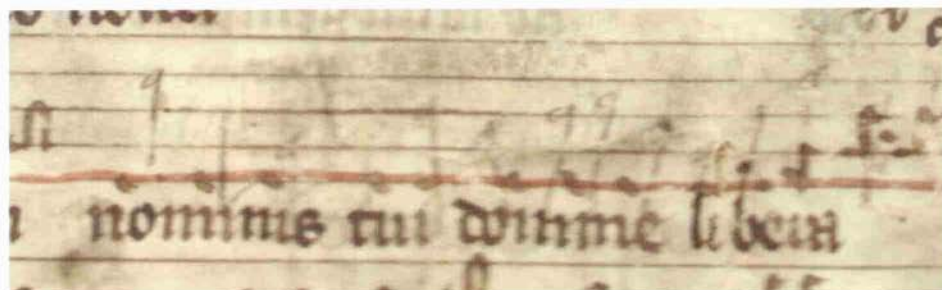 nominis tui domine libera